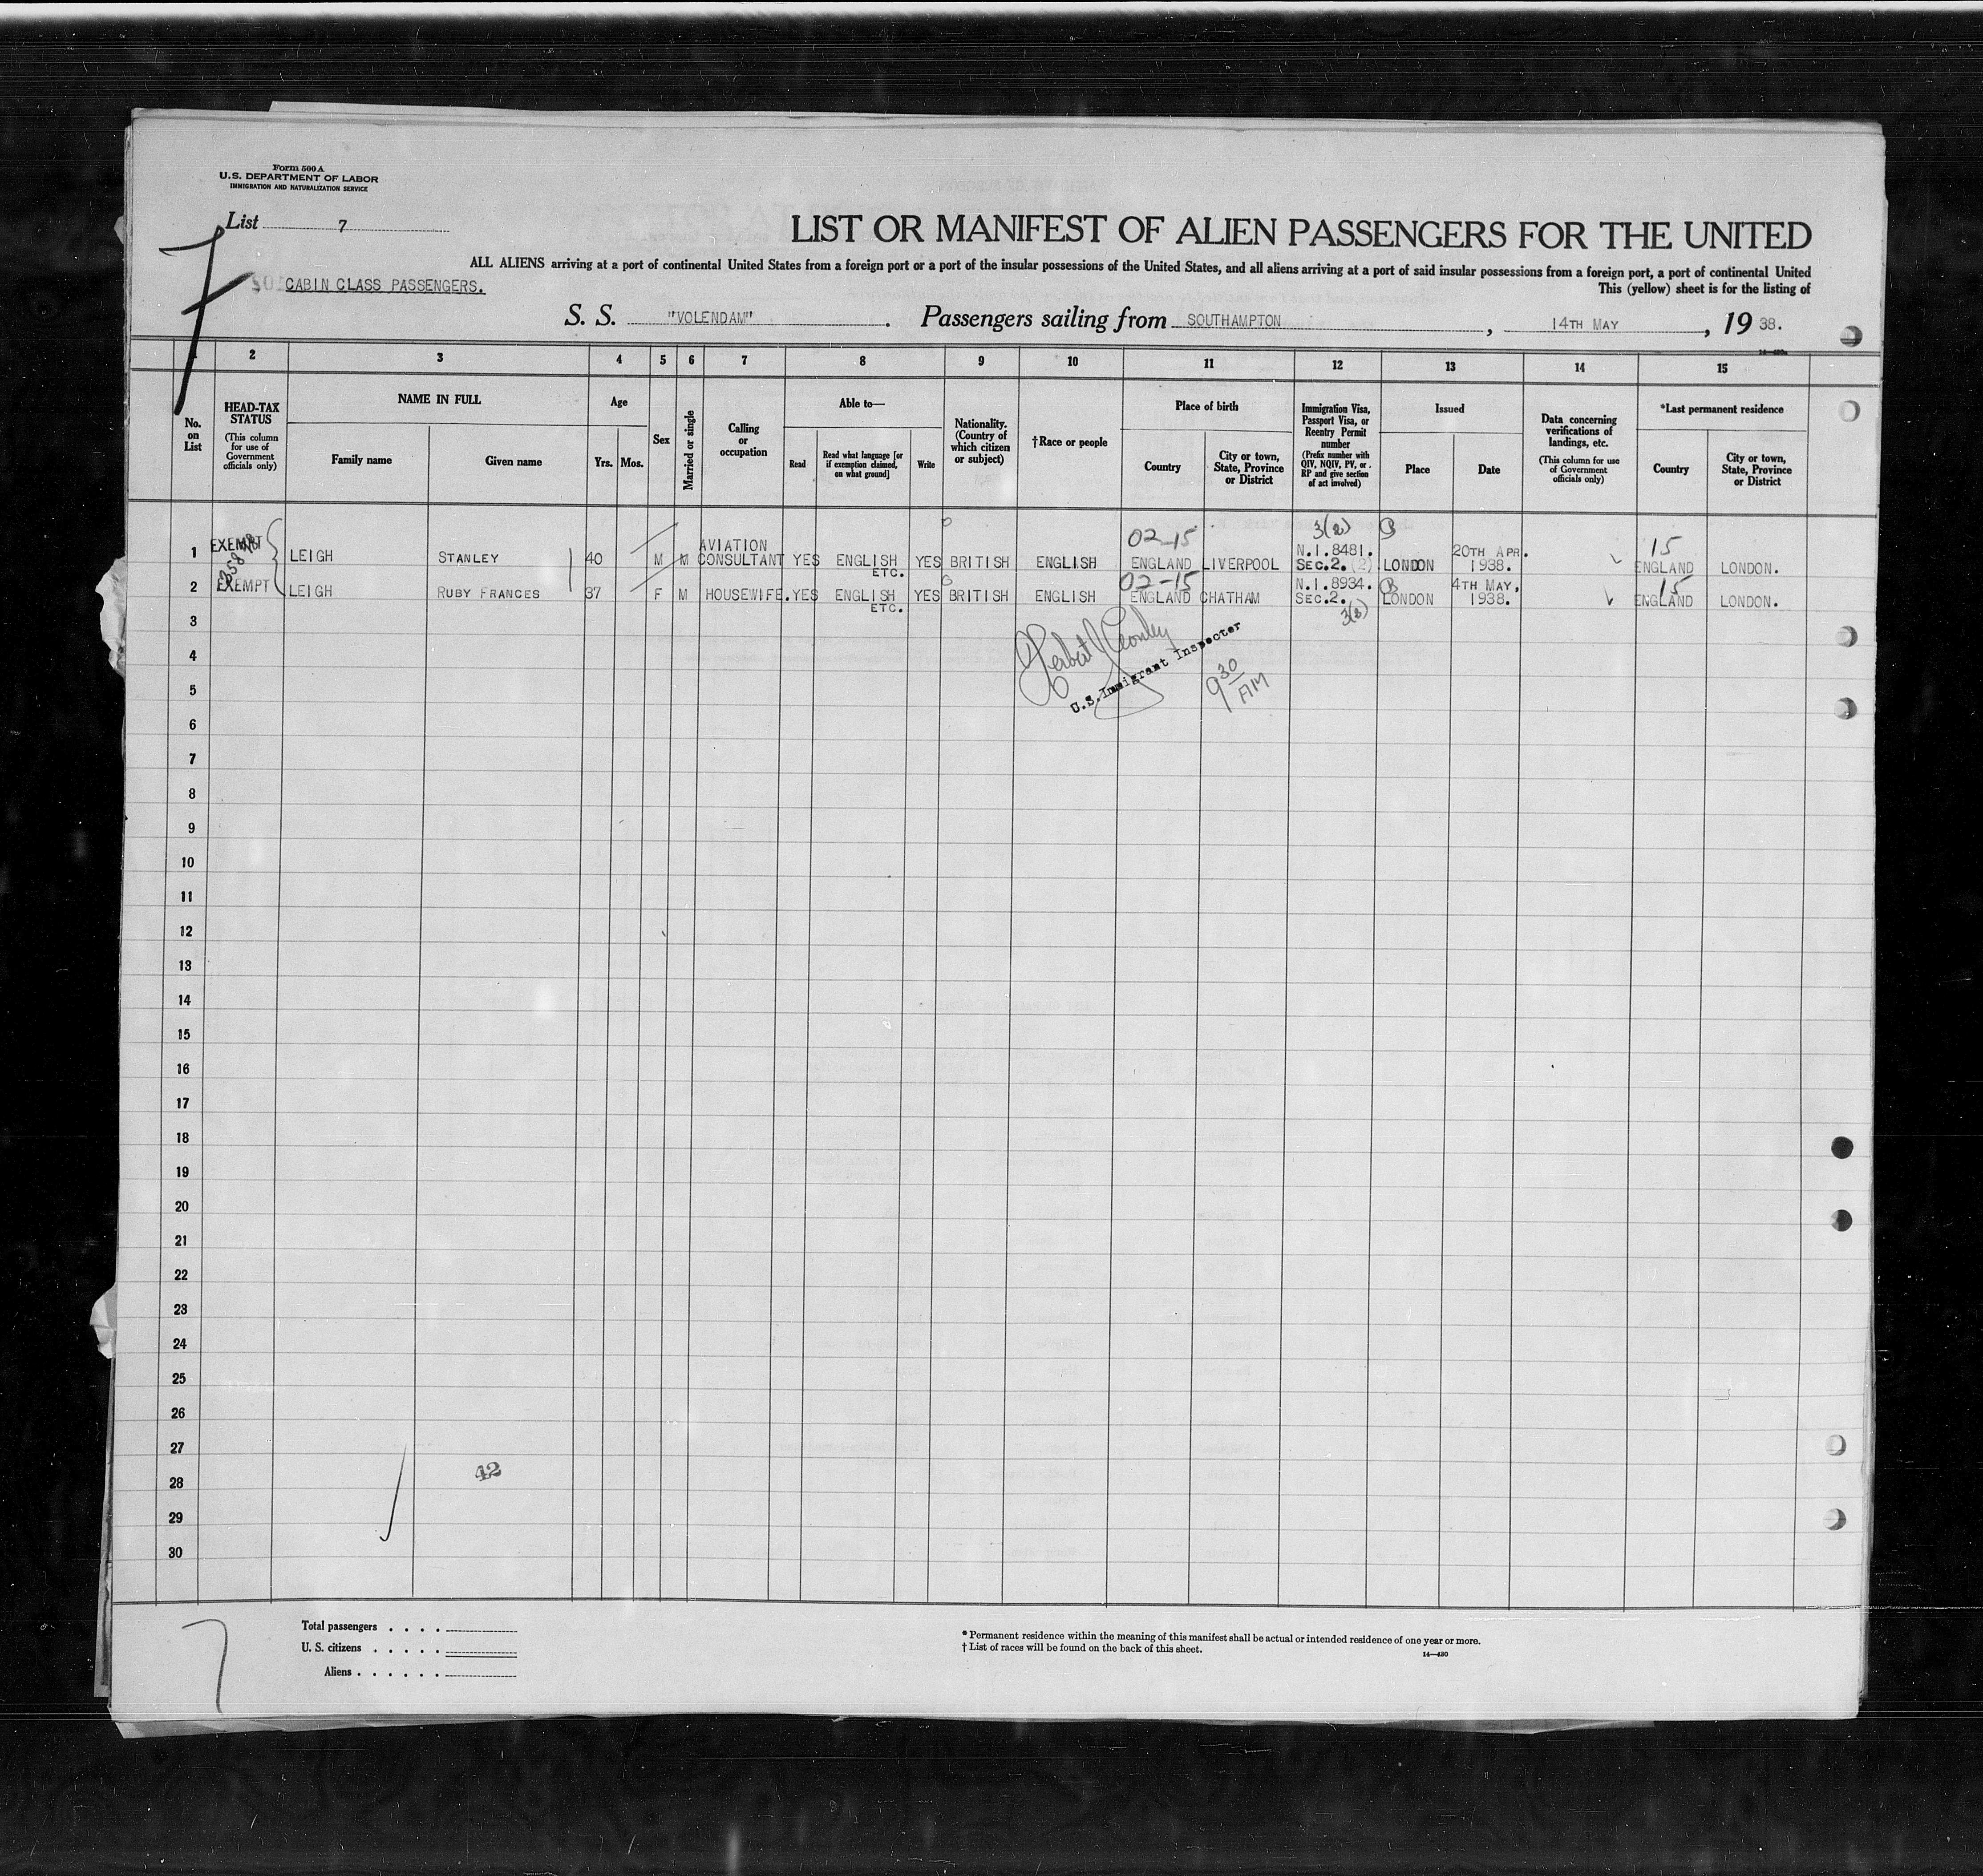 Form 500 A
U. S. DEPARTMENT OF LABOR
IMMIGRATION AND NATURALIZATION SERVICE
List 7
LIST OR MANIFEST OF ALIEN PASSENGERS FOR THE UNITED
ALL ALIENS arriving at a port of continental United States from a foreign port or a port of the insular possessions of the United States, and all aliens arriving at a port of said insular possessions from a foreign port, a port of continental United
CABIN CLASS PASSENGERS.
This (yellow) sheet is for the listing of
S. S. "VOLENDAM". Passengers sailing from SOUTHAMPTON, 14TH MAY, 19 38.
7
2 3 4 5 6 7 8 9 10 11 12 13 14 15
No. on List
HEAD-TAX STATUS
(This column for use of Government officials only)
NAME IN FULL
Family name
Given name
Age
Yrs. Mos.
Sex
Married or single
Calling or occupation
Able to—
Read
Read what language [or if exemption claimed, on what ground]
Write
Nationality. (Country of which citizen or subject)
†Race or people
Place of birth
Country
City or town, State, Province or District
Immigration Visa, Passport Visa, or Reentry Permit number
(Prefix number with QIV, NQIV, PV, or RP and give section of act involved)
Issued
Place
Date
Data concerning verifications of landings, etc.
(This column for use of Government officials only)
*Last permanent residence
Country
City or town, State, Province or District
02-15 3(2) 15
1 EXEMPT LEIGH STANLEY 40 M M AVIATION CONSULTANT YES ENGLISH ETC. YES BRITISH ENGLISH ENGLAND LIVERPOOL N.I.8481. SEC.2. (2) LONDON 20TH APR. 1938. ENGLAND LONDON.
02-15 15
2 EXEMPT LEIGH RUBY FRANCES 37 F M HOUSEWIFE. YES ENGLISH ETC. YES BRITISH ENGLISH ENGLAND CHATHAM N.I.8934. SEC.2. LONDON 4TH MAY, 1938. ENGLAND LONDON.
3(3)
3
4
U.S. Immigrant Inspector
9 30 AM
5
6
7
8
9
10
11
12
13
14
15
16
17
18
19
20
21
22
23
24
25
26
27
42
28
29
30
Total passengers . . . .
U. S. citizens . . . . .
Aliens . . . . . .
7
* Permanent residence within the meaning of this manifest shall be actual or intended residence of one year or more.
† List of races will be found on the back of this sheet.
14—430